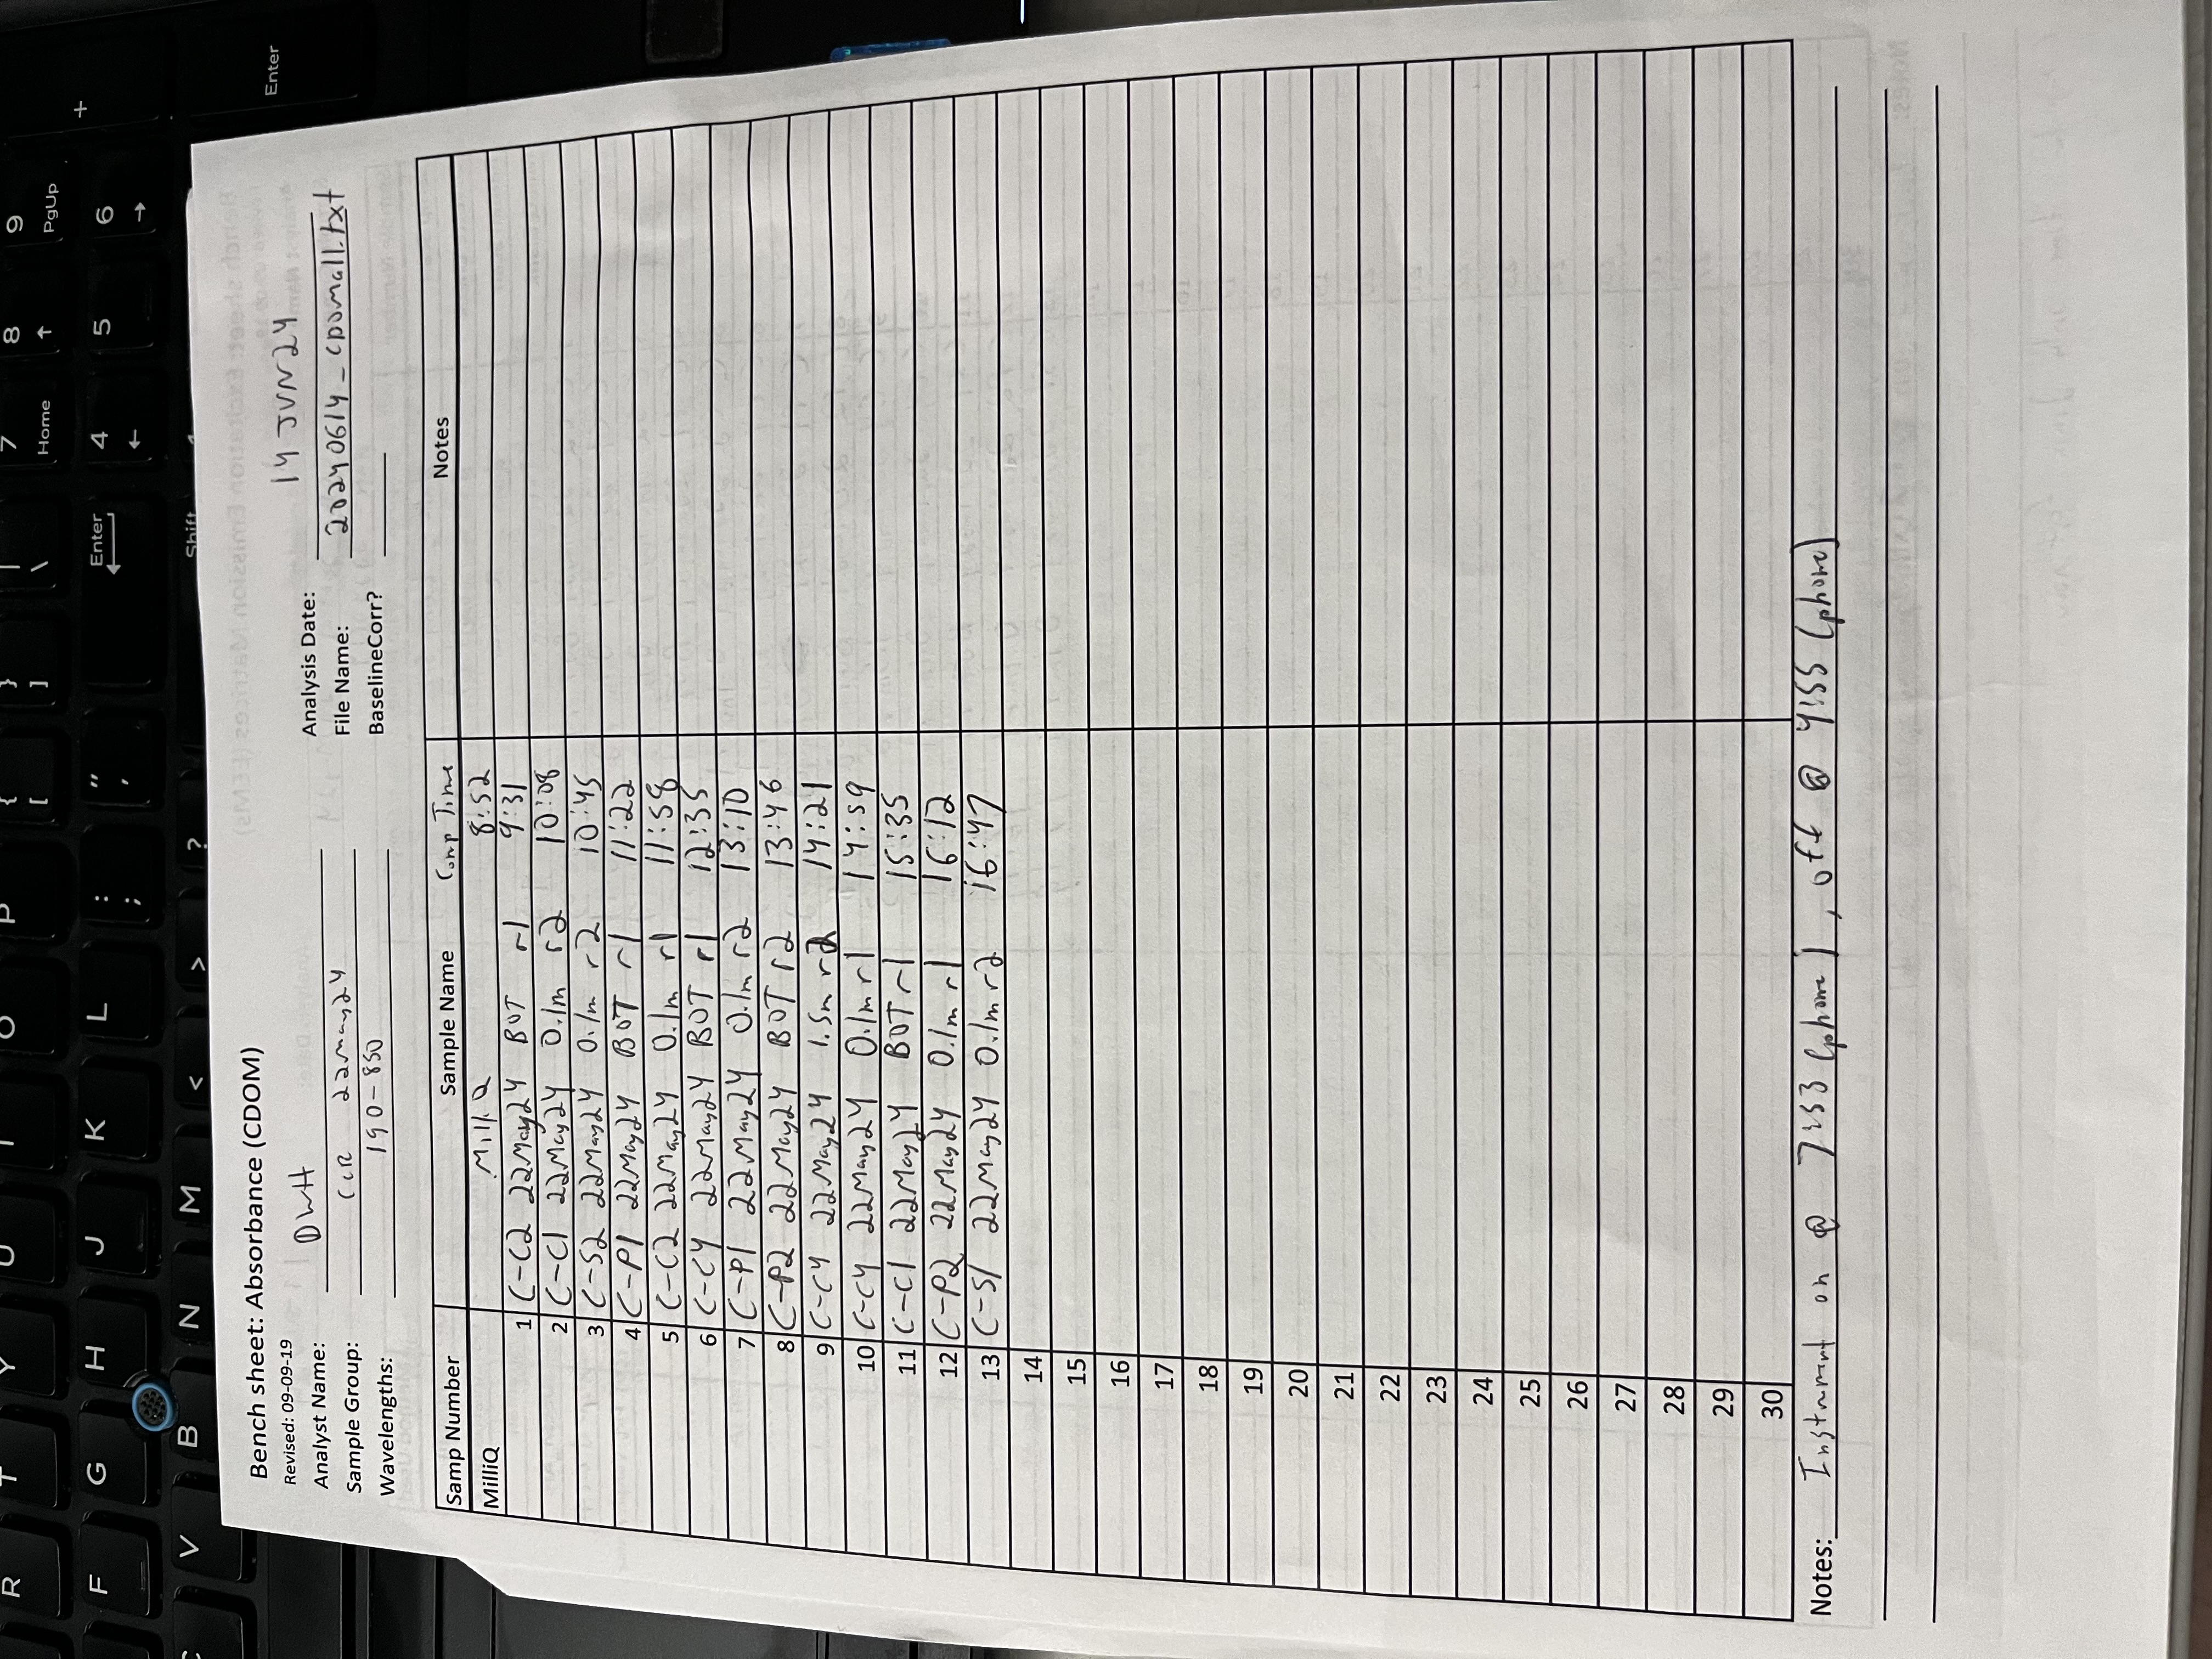 R T Y U I O P { [ } ] | \ 7 Home 8 ↑ 9 PgUp
F G H J K L : ; " ' Enter 4 ← 5 6 → +
C V B N M < > ? Shift 1 Enter
Bench sheet: Absorbance (CDOM)
Revised: 09-09-19
Analyst Name: DWH
Analysis Date: 14 JUN24
Sample Group: CCR 22May24
File Name: 20240614_CDOMall.txt
Wavelengths: 190-850
BaselineCorr?
Samp Number Sample Name Comp Time Notes
MilliQ MilliQ 8:52
1 C-C2 22May24 BOT r1 9:31
2 C-C1 22May24 0.1m r2 10:08
3 C-S2 22May24 0.1m r2 10:45
4 C-P1 22May24 BOT r1 11:22
5 C-C2 22May24 0.1m r1 11:58
6 C-C4 22May24 BOT r1 12:35
7 C-P1 22May24 0.1m r2 13:10
8 C-P2 22May24 BOT r2 13:46
9 C-C4 22May24 1.5m r2 14:21
10 C-C4 22May24 0.1m r1 14:59
11 C-C1 22May24 BOT r1 15:35
12 C-P2 22May24 0.1m r1 16:12
13 C-S1 22May24 0.1m r2 16:47
14
15
16
17
18
19
20
21
22
23
24
25
26
27
28
29
30
Notes: Instrument on @ 7:53 (phone), off @ 4:55 (phone)